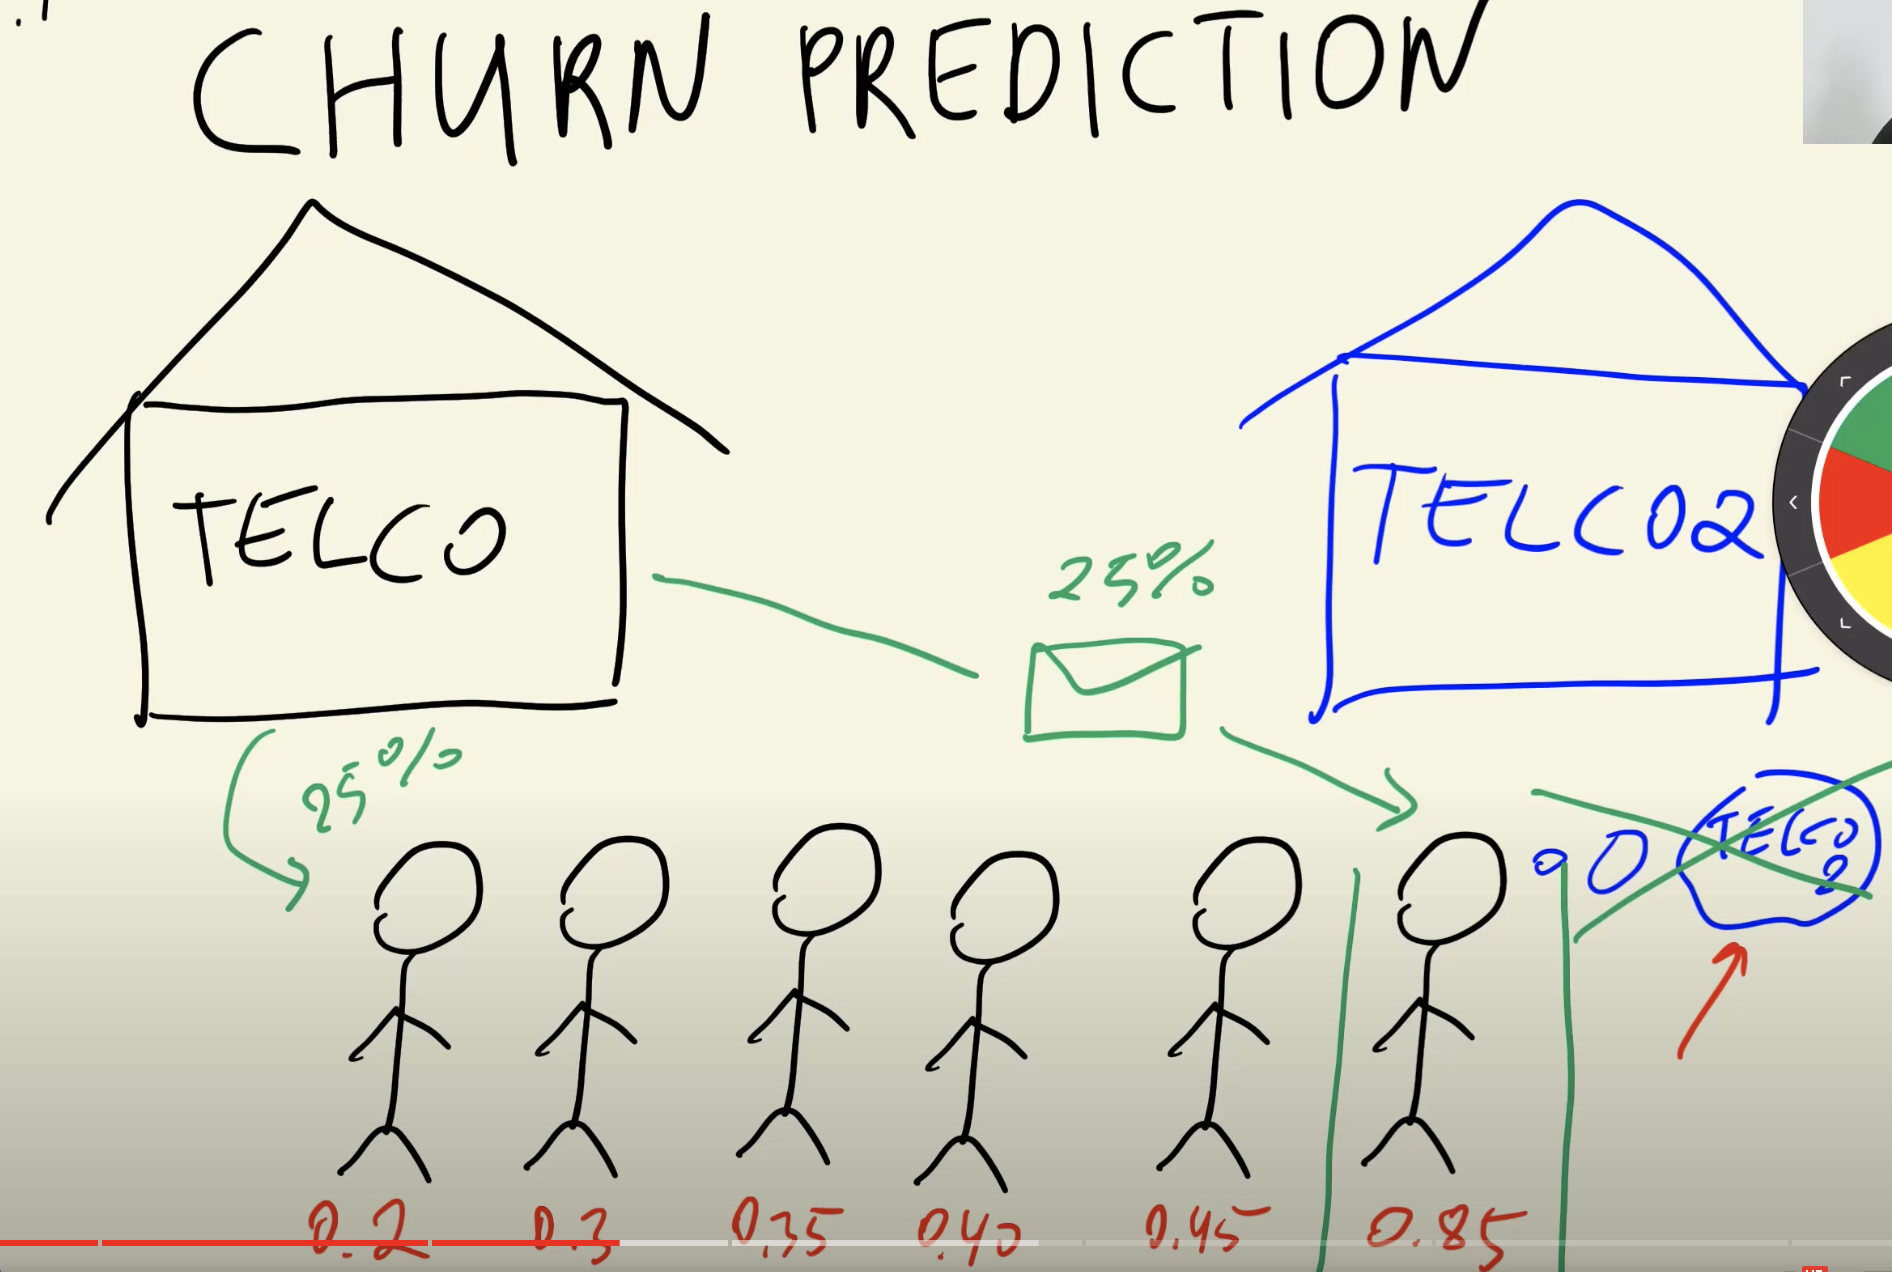 CHURN PREDICTION
TELCO
TELCO2
25%
25%
TELCO
2
0.2 0.3 0.35 0.40 0.45 0.85